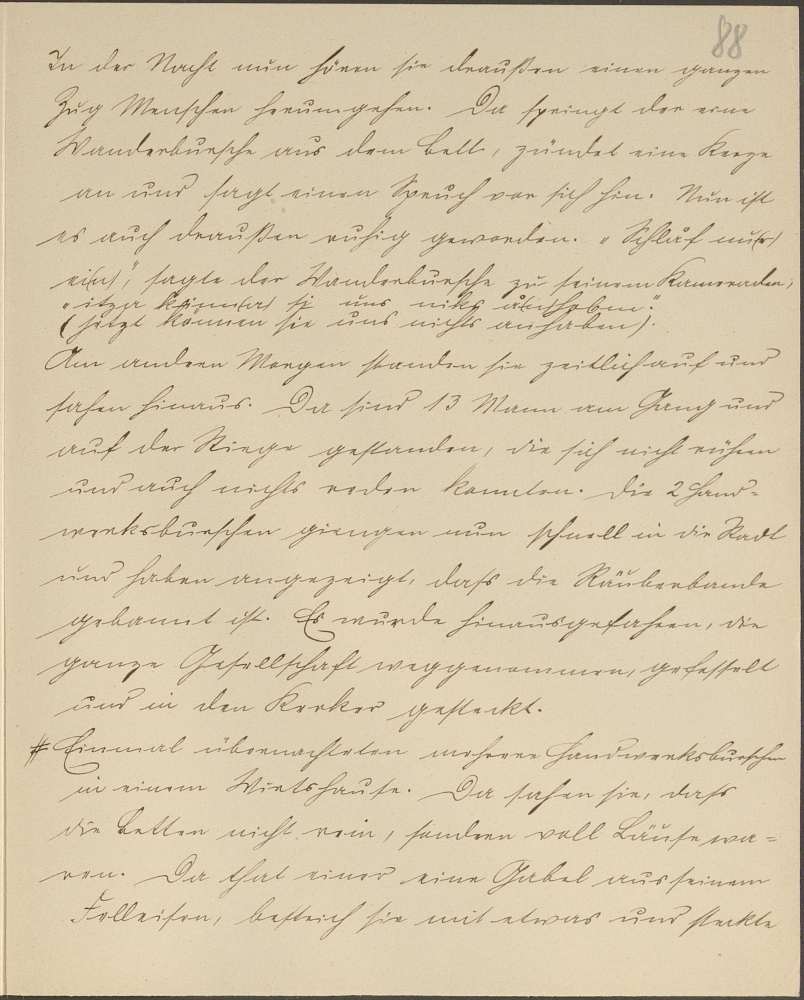 88
In der Nacht nun hören sie draußen einen ganzen
Zug Menschen herumgehen. Da springt der eine
Wanderbursche aus dem Bett, zündet eine Kerze
an und sagt einen Spruch vor sich hin. Nun ist
es auch draußen ruhig geworden. „Schlåf nu(r)
ei(n)", sagte der Wanderbursche zu seinem Kameraden,
„itza könn(a) si uns niks å(n)hobm."
(jetzt können sie uns nichts anhaben).
Am andern Morgen standen sie zeitlich auf und
sahen hinaus. Da sind 13 Mann am Gang und
auf der Stiege gestanden, die sich nicht rühren
und auch nichts reden konnten. Die 2 Hand-
werksburschen giengen nun schnell in die Stadt
und haben angezeigt, dass die Räuberbande
gebannt ist. Es wurde hinausgefahren, die
ganze Gesellschaft weggenommen, gefesselt
und in den Kerker gesteckt.
# Einmal übernachteten mehrere Handwerksburschen
in einem Wirtshause. Da sahen sie, dass
die Betten nicht rein, sondern voll Läuse wa-
ren. Da that einer eine Gabel aus seinem
Felleisen, bestrich sie mit etwas und steckte